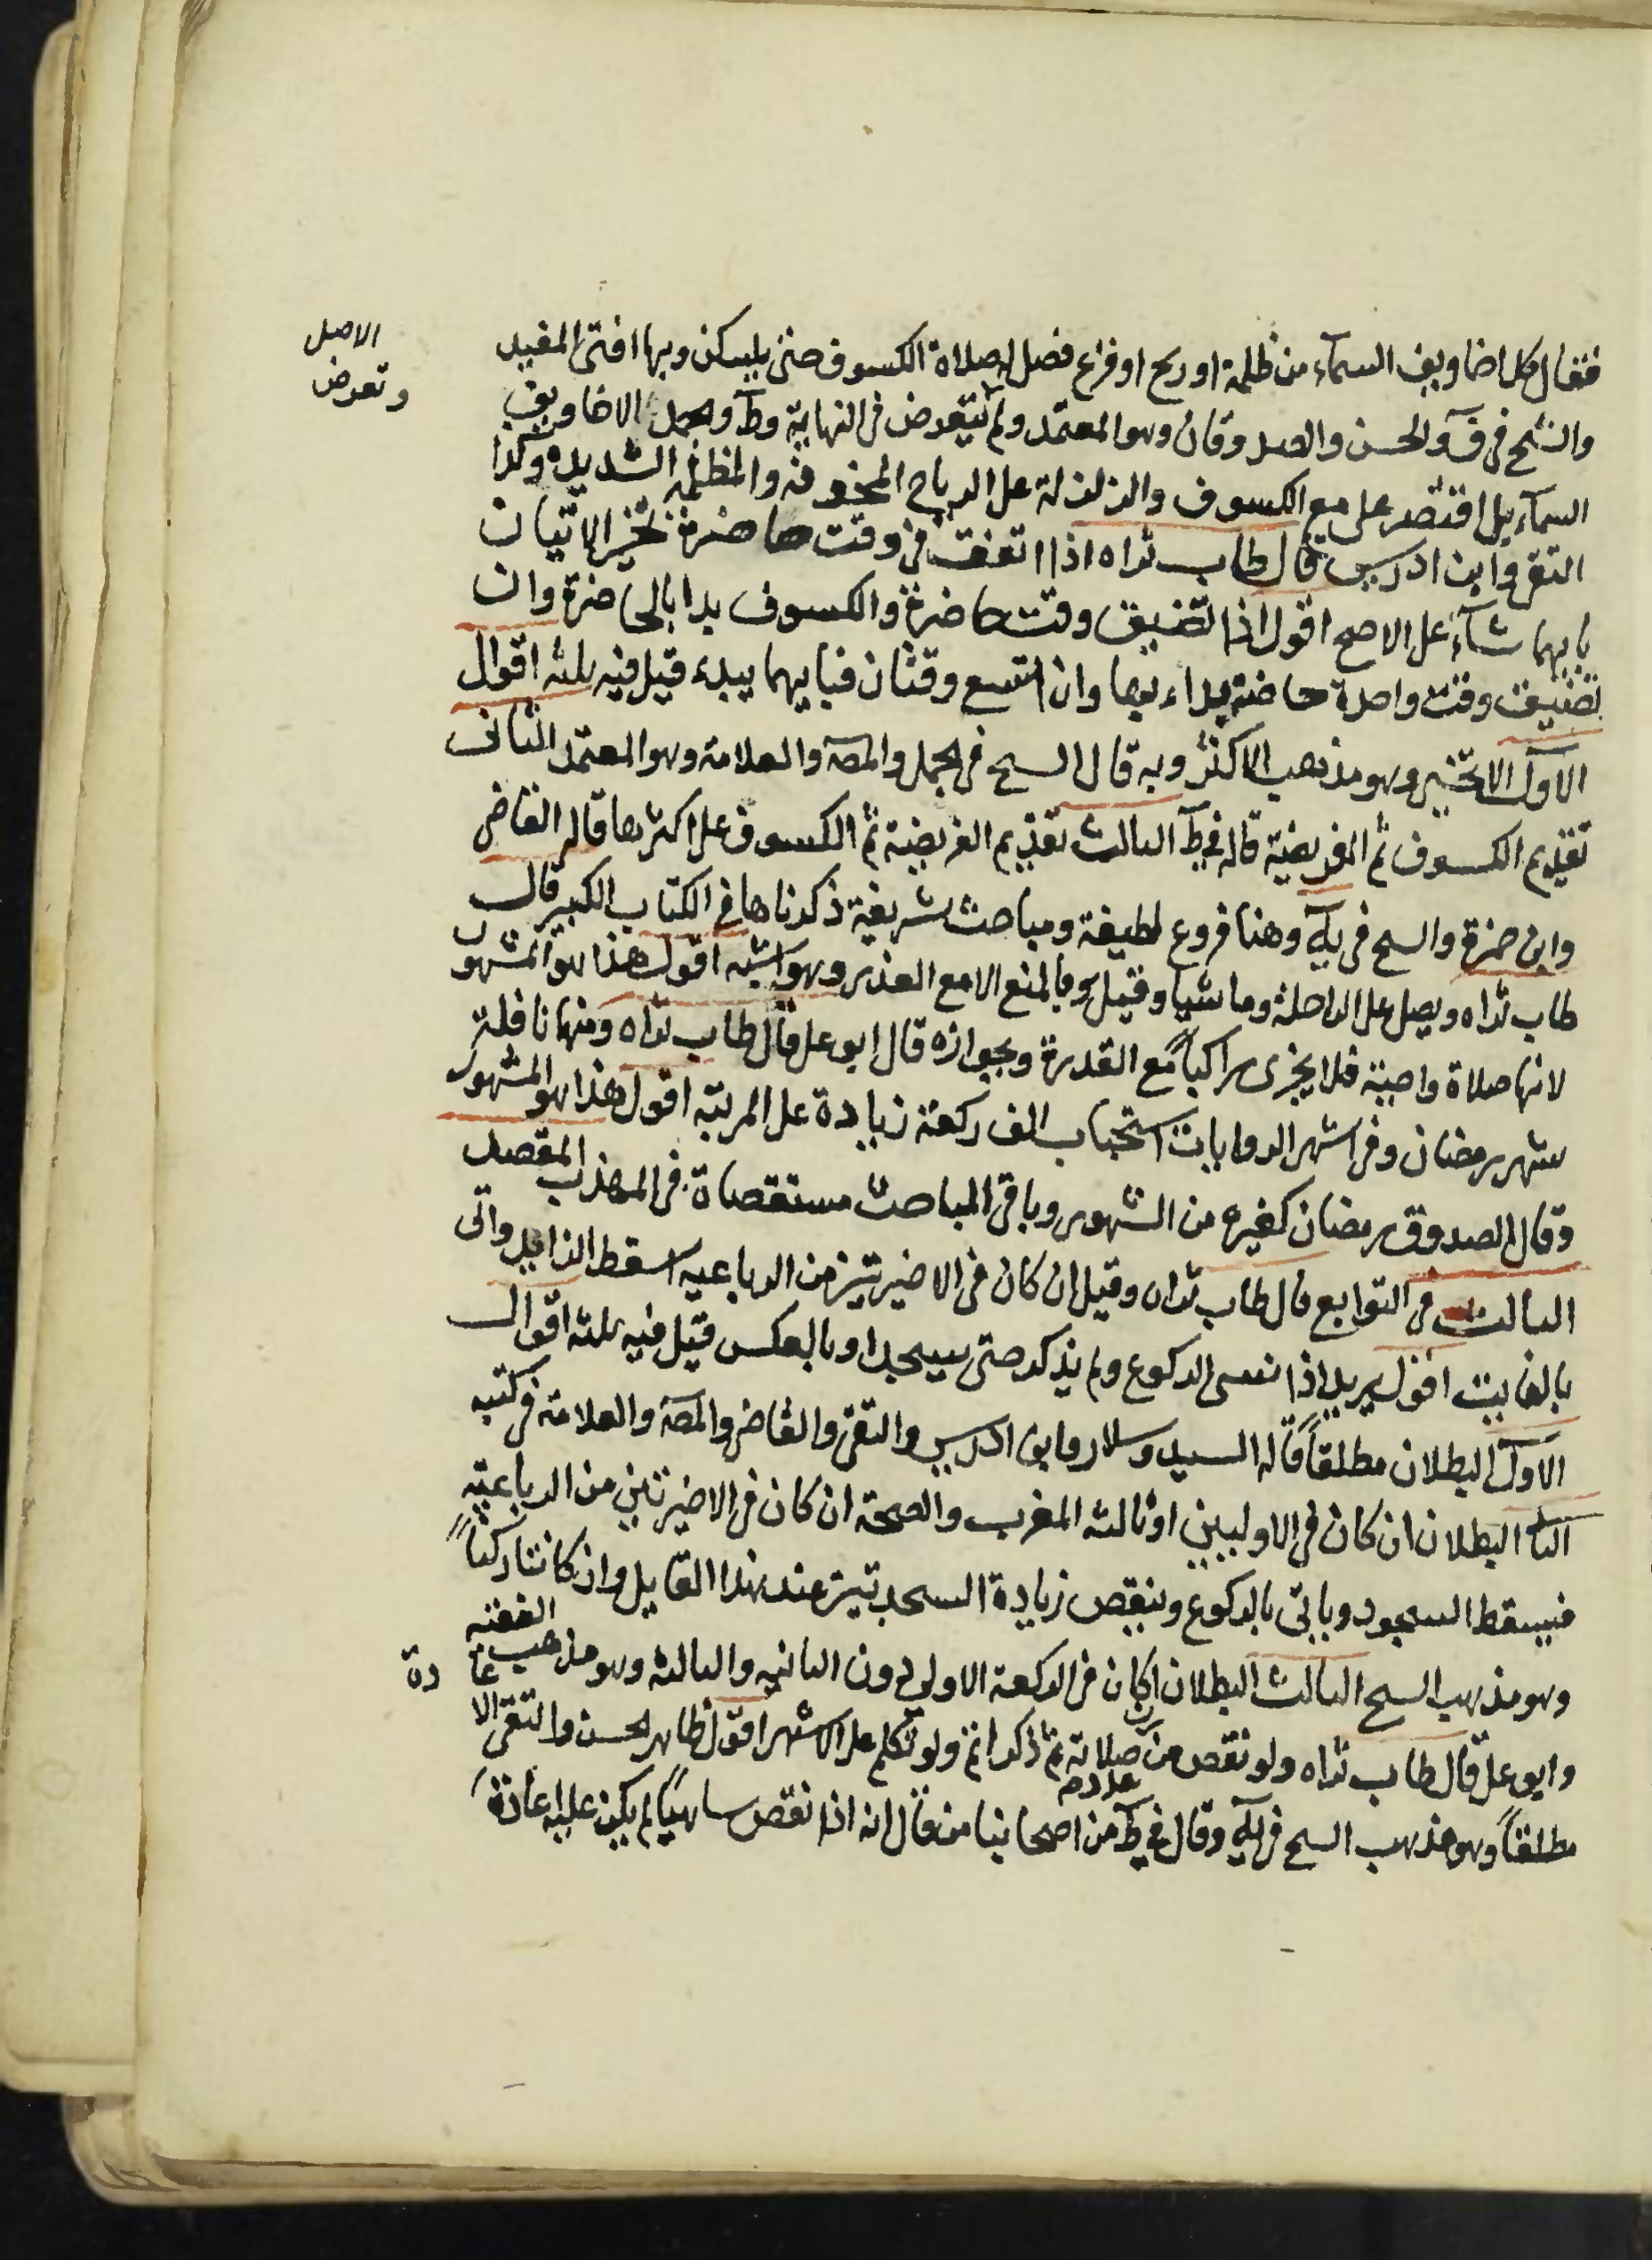 الاصل
وتعرض
فقال كل اخاويف السماء من ظلمة او ريح او فزع فصل له صلاة الكسوف حتى يسكن وبها افتى المفيد
والشيخ في ف والحسن والصد وقان وهو المعتمد ولم يتعرض في النهاية وط والجمل الاخاويف
السماء بل اقتصر على مع الكسوف والزلزلة على الرياح المخوفة والظلمة الشديدة وكذا
التقي وابن ادريس قال طاب ثراه اذا اتفقت في وقت حاضرة تخير الاتيان
بايهما شاء على الاصح اقول اذا تضيق وقت حاضرة والكسوف بدا بالحاضرة وان
تضيق وقت واحدة حاضة بداء بها وان اتسع وقتان فبايهما يبدء قيل فيه ثلثه اقوال
الاول التخيير وهو مذهب الاكثر وبه قال الشيخ في الجمل والمصـ والعلامة وهو المعتمد الثانى
تقديم الكسوف ثم الفريضة قاله في ط الثالث تقديم الفريضة ثم الكسوف على اكثرها قاله القاضى
وابن حمزة والشيخ في يه وهنا فروع لطيفة ومباحث شريفة ذكرناها في الكتاب الكبير قال
طاب ثراه ويصلى على الراحلة وماشيا وقيل بالمنع الا مع العذر وهو اشبه اقول هذا هو المشهور
لانها صلاة واجبة فلا يجزى راكبا مع القدرة وبجوازه قال ابو على قال طاب ثراه ومنها نافلة
شهر رمضان وفي اشهر الروايات استحباب الف ركعة زيادة على المرتبه اقول هذا هو المشهور
وقال الصدوق رمضان كغيره من الشهور وباقي المباحث مستقصاة في المهذب المقصد
الثالث في التوابع قال طاب ثراه وقيل ان كان في الاخيرتين من الرباعيه اسقط الزايد واتى
بالفايت اقول يريد اذا نسى الركوع ولم يذكر حتى يسجد او بالعكس قيل فيه ثلثه اقوال
الاول البطلان مطلقاً قاله السيد وسلار وابن ادريس والتقي والقاضى والمصـ والعلامة في كتبه
الثا البطلان ان كان في الاوليين او ثالثه المغرب والصحة ان كان في الاخيرتين من الرباعيه
فيسقط السجود وياتى بالركوع وينقص زيادة السجدتين عند هذا القايل وان كانتا ركناً
وهو مذهب الشيخ الثالث البطلان ان كان في الركعة الاولى دون الثانيه والثالثه وهو مذهب الفقيه
وابو على قال طاب ثراه ولو نقص من صلاته ثم ذكر اتم ولو تكلم على الاشهر اقول ظاهر الحسن والتقي الاعادة
مطلقاً وهو مذهب الشيخ في يه وقال في ط من اصحابنا من قال انه اذا نقص ساهياً لم يكن عليه اعادة